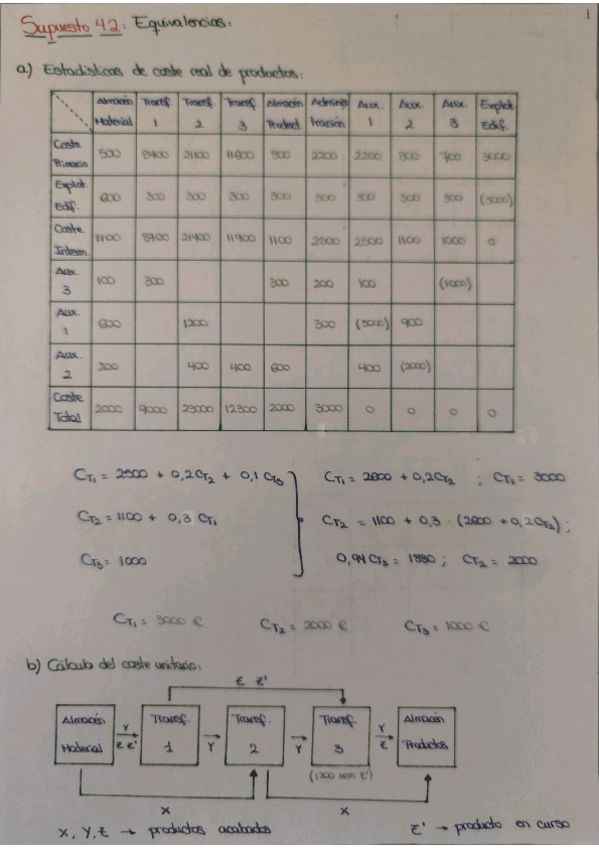 1
Supuesto 4.2: Equivalencias:
a) Estadísticas de coste real de productos:
Almacén Material Transf. 1 Transf. 2 Transf. 3 Almacén Product. Adminis tración Aux. 1 Aux. 2 Aux. 3 Explot. Edif.
Coste Primario 500 8400 21100 11600 800 2200 2200 800 700 3000
Explot. Edif. 600 300 300 300 300 300 300 300 300 (3000)
Coste Interm. 1100 8700 21400 11900 1100 2500 2500 1100 1000 0
Aux. 3 100 300 300 200 100 (1000)
Aux. 1 600 1200 300 (3000) 900
Aux. 2 200 400 400 600 400 (2000)
Coste Total 2000 9000 23000 12300 2000 3000 0 0 0 0
CT₁ = 2500 + 0,2CT₂ + 0,1 CT₃ CT₁ = 2600 + 0,2CT₂ ; CT₁ = 3000
CT₂ = 1100 + 0,3 CT₁ CT₂ = 1100 + 0,3 · (2600 + 0,2CT₂);
CT₃ = 1000 0,94 CT₂ = 1880 ; CT₂ = 2000
CT₁ = 3000 € CT₂ = 2000 € CT₃ = 1000 €
b) Cálculo del coste unitario:
Z Z'
Almacén Material Y Z Z' Transf. 1 Y Transf. 2 Y Transf. 3 Y Z Almacén Productos
X X
X, Y, Z → productos acabados Z' → producto en curso